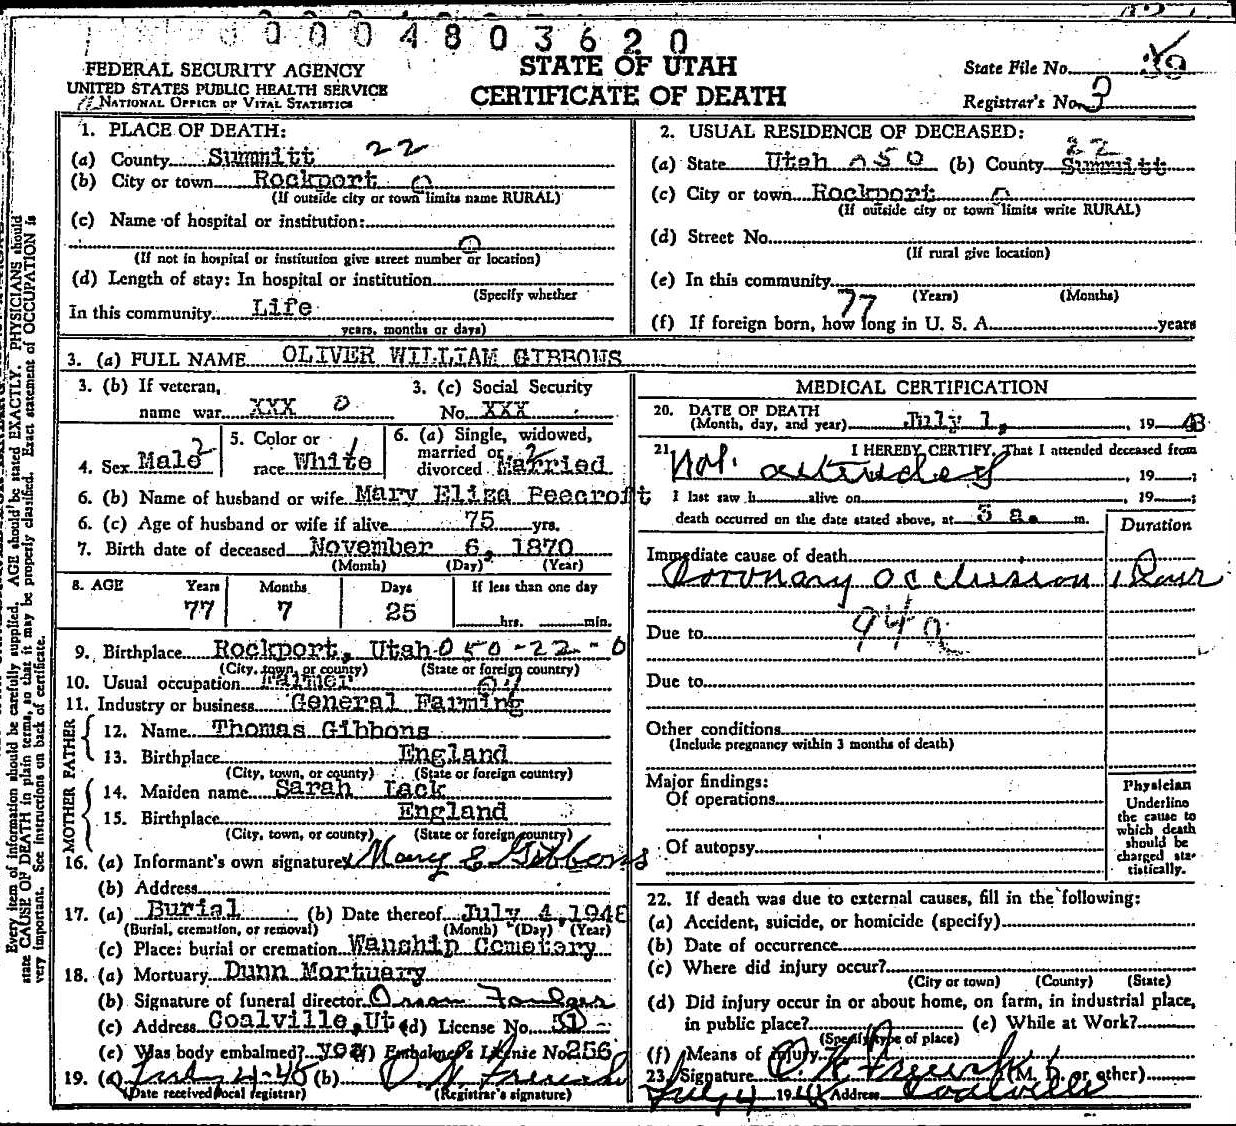 0 0 0 4 8 0 3 6 2 0
FEDERAL SECURITY AGENCY
UNITED STATES PUBLIC HEALTH SERVICE
NATIONAL OFFICE OF VITAL STATISTICS
STATE OF UTAH
CERTIFICATE OF DEATH
State File No. 39
Registrar's No. 3
1. PLACE OF DEATH:
(a) County Summitt 22
(b) City or town Rockport 0
(If outside city or town limits name RURAL)
(c) Name of hospital or institution:
0
(If not in hospital or institution give street number or location)
(d) Length of stay: In hospital or institution
(Specify whether
In this community Life
years, months or days)
2. USUAL RESIDENCE OF DECEASED:
22
(a) State Utah 050 (b) County Summitt
(c) City or town Rockport 0
(If outside city or town limits write RURAL)
(d) Street No.
(If rural give location)
(e) In this community
77 (Years) (Months)
(f) If foreign born, how long in U. S. A. years
3. (a) FULL NAME OLIVER WILLIAM GIBBONS
3. (b) If veteran,
name war XXX 0
3. (c) Social Security
No. XXX
4. Sex Male 2
5. Color or
race White 1
6. (a) Single, widowed,
married or
divorced Married 2
6. (b) Name of husband or wife Mary Eliza Peecroft
6. (c) Age of husband or wife if alive 75 yrs.
7. Birth date of deceased November 6, 1870
(Month) (Day) (Year)
8. AGE Years Months Days If less than one day
77 7 25 hrs. min.
9. Birthplace Rockport, Utah 050-22-0
(City, town, or county) (State or foreign country)
10. Usual occupation Farmer
11. Industry or business General Farming
FATHER
12. Name Thomas Gibbons
13. Birthplace England
(City, town, or county) (State or foreign country)
MOTHER
14. Maiden name Sarah Lack
15. Birthplace England
(City, town, or county) (State or foreign country)
16. (a) Informant's own signature x Mary E Gibbons
(b) Address
17. (a) Burial (b) Date thereof July 4, 1948
(Burial, cremation, or removal) (Month) (Day) (Year)
(c) Place: burial or cremation Wanship Cemetery
18. (a) Mortuary Dunn Mortuary
(b) Signature of funeral director
(c) Address Coalville, Ut (d) License No. 51
(e) Was body embalmed? yes (f) Embalmer's License No. 256
19. (a) July 4-48 (b)
(Date received local registrar) (Registrar's signature)
MEDICAL CERTIFICATION
20. DATE OF DEATH
(Month, day, and year) July 1, 1948
21. I HEREBY CERTIFY, That I attended deceased from
Not attended , 19 ;
I last saw h alive on , 19 ;
death occurred on the date stated above, at 5 a. m.
Duration
Immediate cause of death
Coronary occlusion 1 hour
94a
Due to
Due to
Other conditions
(Include pregnancy within 3 months of death)
Major findings:
Of operations
Of autopsy
Physician
Underline
the cause to
which death
should be
charged sta-
tistically.
22. If death was due to external causes, fill in the following:
(a) Accident, suicide, or homicide (specify)
(b) Date of occurrence
(c) Where did injury occur?
(City or town) (County) (State)
(d) Did injury occur in or about home, on farm, in industrial place,
in public place? (e) While at Work?
(Specify type of place)
(f) Means of injury
23. Signature (M. D. or other)
July 4 1948 Address Coalville
Every item of information should be carefully supplied. AGE should be stated EXACTLY. PHYSICIANS should
state CAUSE OF DEATH in plain terms, so that it may be properly classified. Exact statement of OCCUPATION is
very important. See instructions on back of certificate.